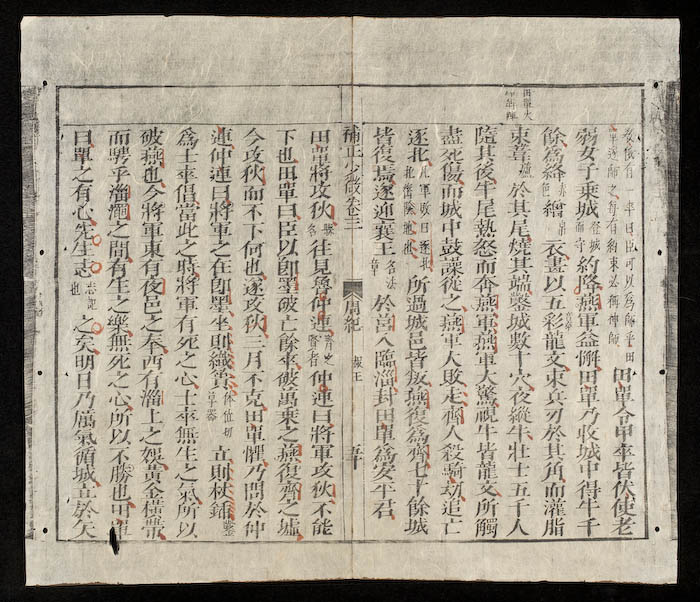 田單火
田單令甲卒皆伏使老
弱女子乘城登城而守約降燕軍益懈田單乃收城中得牛千
餘為絳赤色繒帛衣畫以五彩龍文束兵刃於其角而灌脂
束葦蘆於其尾燒其端鑿城數十穴夜縱牛壯士五千人
隨其後牛尾熱怒而奔燕軍燕軍大驚視牛皆龍文所觸
盡死傷而城中鼓譟從之燕軍大敗走齊人殺騎劫追亡
逐北凡軍敗曰逐北北為陰地也所過城邑皆叛燕復為齊七十餘城
皆復焉遂迎襄王名法章於莒入臨淄封田單為安平君
補正少微卷三 周紀 赧王 五十
田單將攻狄縣名往見魯仲連齊之賢者仲連曰將軍攻狄不能
下也田單曰臣以即墨破亡餘卒破萬乘之燕復齊之墟
今攻狄而不下何也遂攻狄三月不克田單懼乃問於仲
連仲連曰將軍之在即墨坐則織蕢求位切草器立則杖鍤鍫
為士卒倡當此之時將軍有死之心士卒無生之氣所以
破燕也今將軍東有夜邑之奉西有淄上之娛黃金橫帶
而騁乎淄澠之間有生之樂無死之心所以不勝也田單
曰單之有心先生志志記也之矣明日乃厲氣循城立於矢